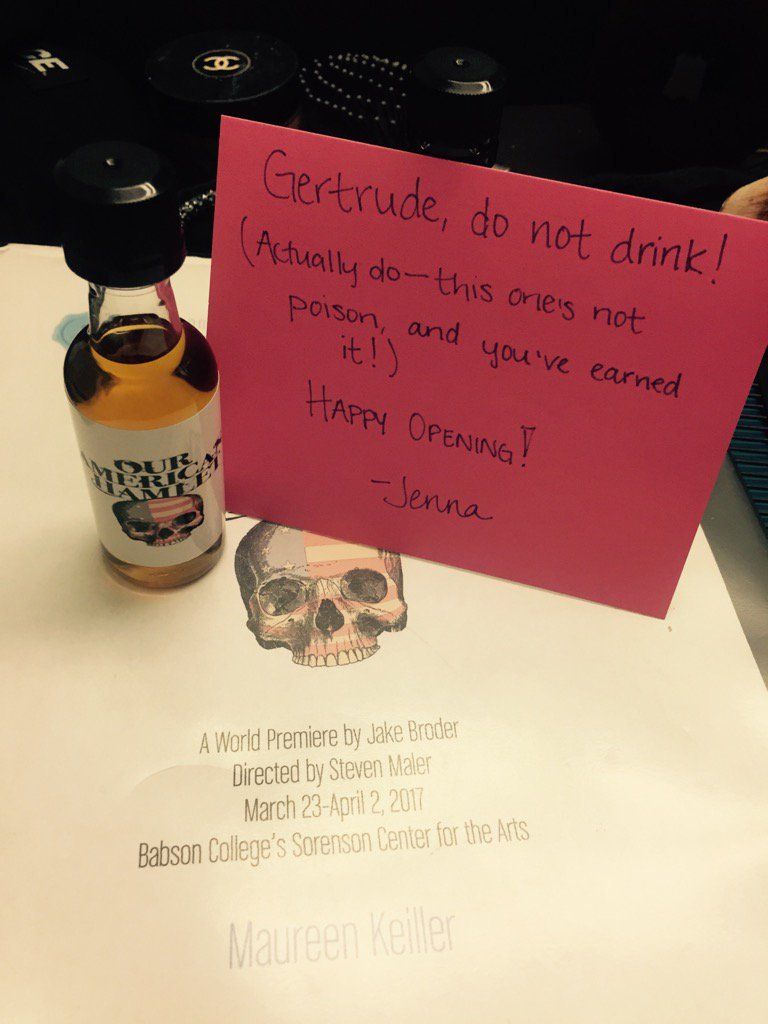 Gertrude, do not drink!
(Actually do—this one's not
poison, and you've earned
it!)
HAPPY OPENING!
-Jenna
OUR
AMERICAN
HAMLET
A World Premiere by Jake Broder
Directed by Steven Maler
March 23-April 2, 2017
Babson College's Sorenson Center for the Arts
Maureen Keiller